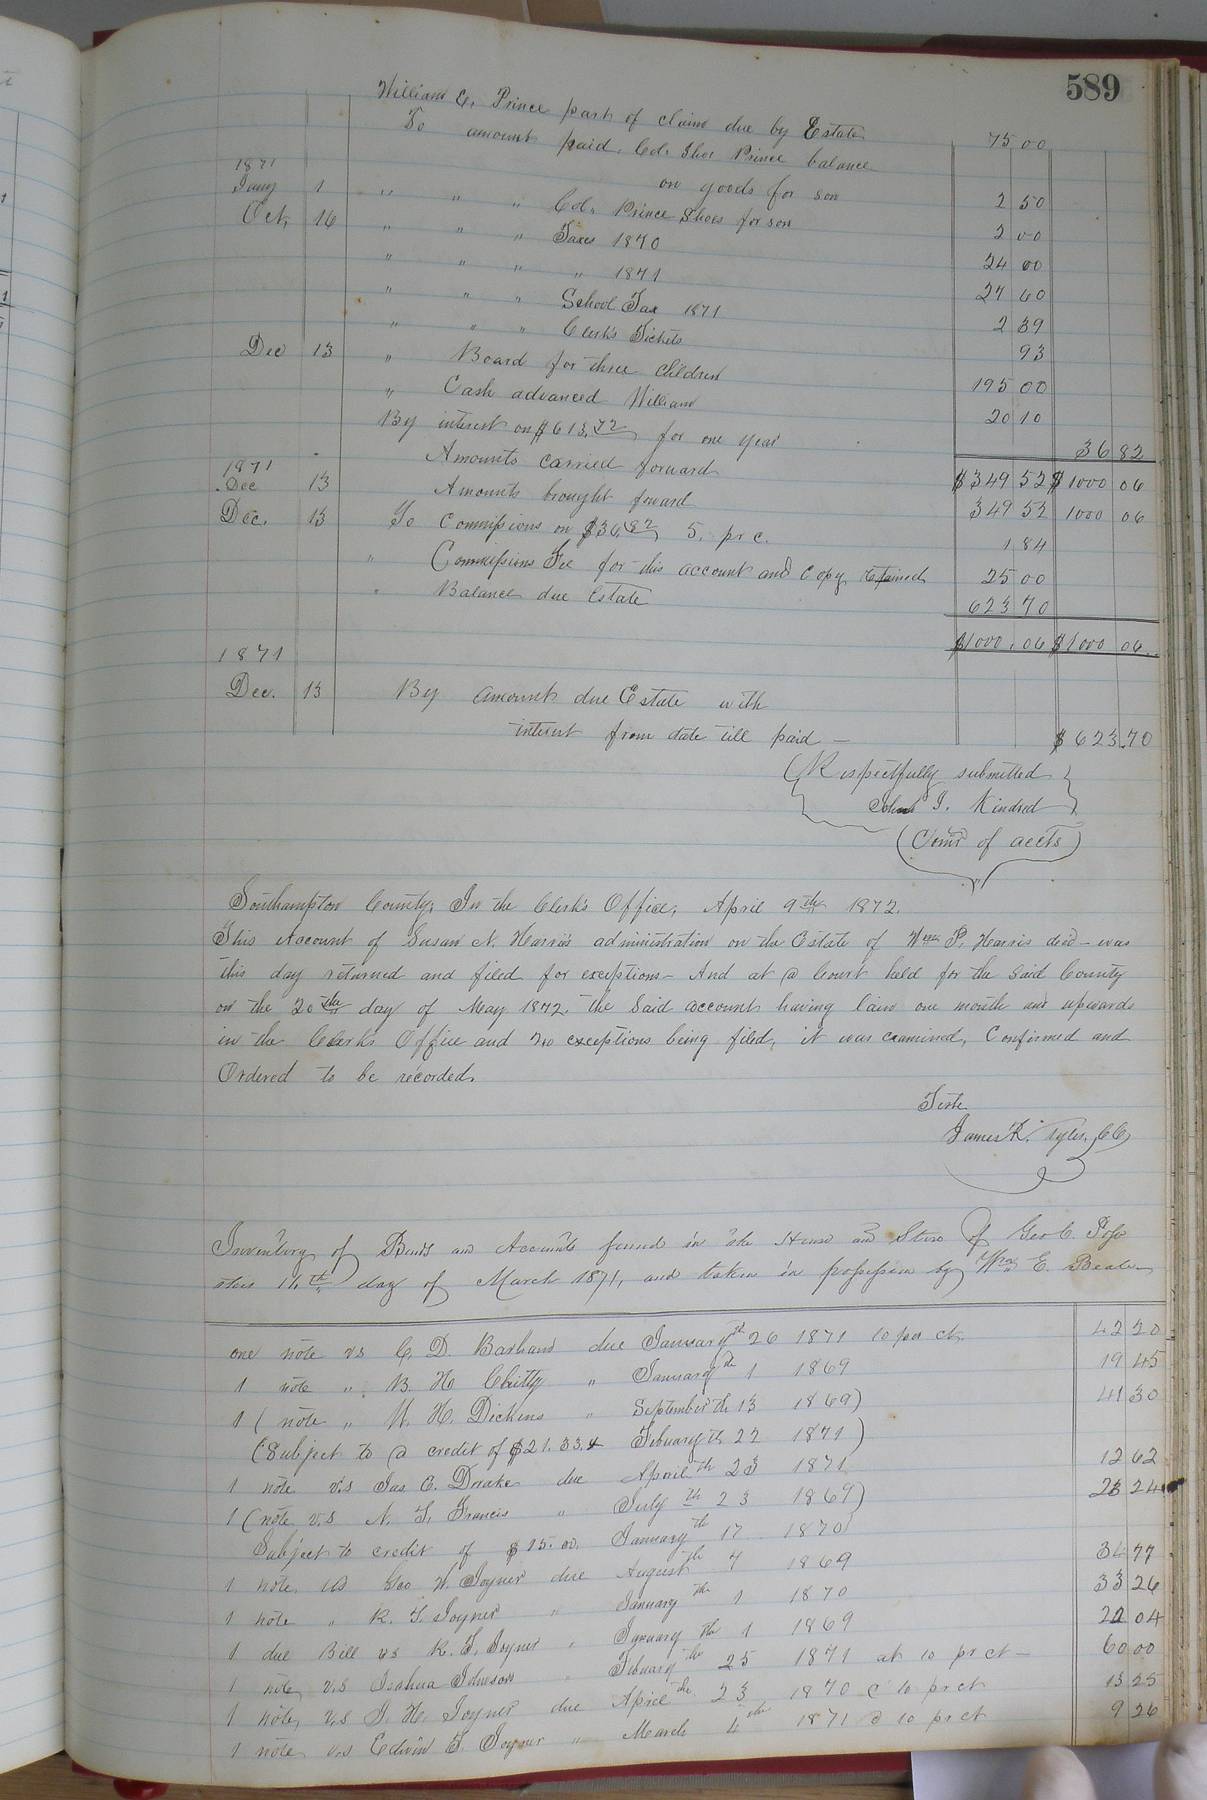 589
William E. Prince part of claim due by Estate 75 00
To amount paid Ed. Thos Prince balance
1871
Jany 1 on goods for son 2 50
Oct, 16 " " " Ed. Prince Shoes for son 2 00
" " " Taxes 1870 24 00
" " " " 1871 27 60
" " " School Tax 1871 2 39
" " " Clerk's Tickets 93
Dec 13 " Board for three children 195 00
" Cash advanced William 20 10
By interest on $613.72 for one year 36 82
Amounts carried forward $349 52 $1000 06
1871
Dec 13 Amounts brought forward 349 52 1000 06
Dec. 13 To Commissions on $36.82 5. pr c. 1 84
" Commissions Fee for this account and Copy retained 25 00
" Balance due Estate 623 70
$1000.06 $1000 06
1871
Dec. 13 By amount due Estate with
interest from date till paid — $623.70
(Respectfully submitted
John J. Kindred
(Comr of accts)
Southampton County, In the Clerk's Office, April 9th 1872.
This Account of Susan N. Harris's administration on the Estate of Wm P. Harris decd - was
this day returned and filed for exceptions - And at a Court held for the said County
on the 20th day of May 1872. the said account having lain one month and upwards
in the Clerk's Office and no exceptions being filed, it was examined, Confirmed and
Ordered to be recorded.
Teste
James R. Tyler, CC
Inventory of Bonds and Accounts found in the House and Store of Geo C. Pope
this 14th day of March 1871, and taken in possession by Wm E. Beale
one note vs C. D. Barham due January th 26 1871 10 per ct, 42 20
1 note " B. H. Chitty " January th 1 1869 19 45
1 (note " W. H. Dickens " September th 13 1869) 41 30
(Subject to a credit of $21.33.4 February th 22 1871)
1 note v.s Jas E. Drake due April th 23 1871 12 62
1 (note v.s N. T. Francis " July th 23 1869) 28 24
Subject to credit of $15.00. January th 17 1870
1 note vs Geo W. Joyner due August th 7 1869 34 77
1 note " R. T. Joyner " January th 1 1870 33 26
1 due Bill vs R. T. Joyner " January th 1 1869 22 04
1 note, v.s Joshua Johnson " February th 25 1871 at 10 pr ct — 60 00
1 note, v.s J. H. Joyner due April the 23 1870 @ 10 pr ct 13 25
1 note v.s Edwin T. Joyner " March 4th 1871 @ 10 pr ct 9 26